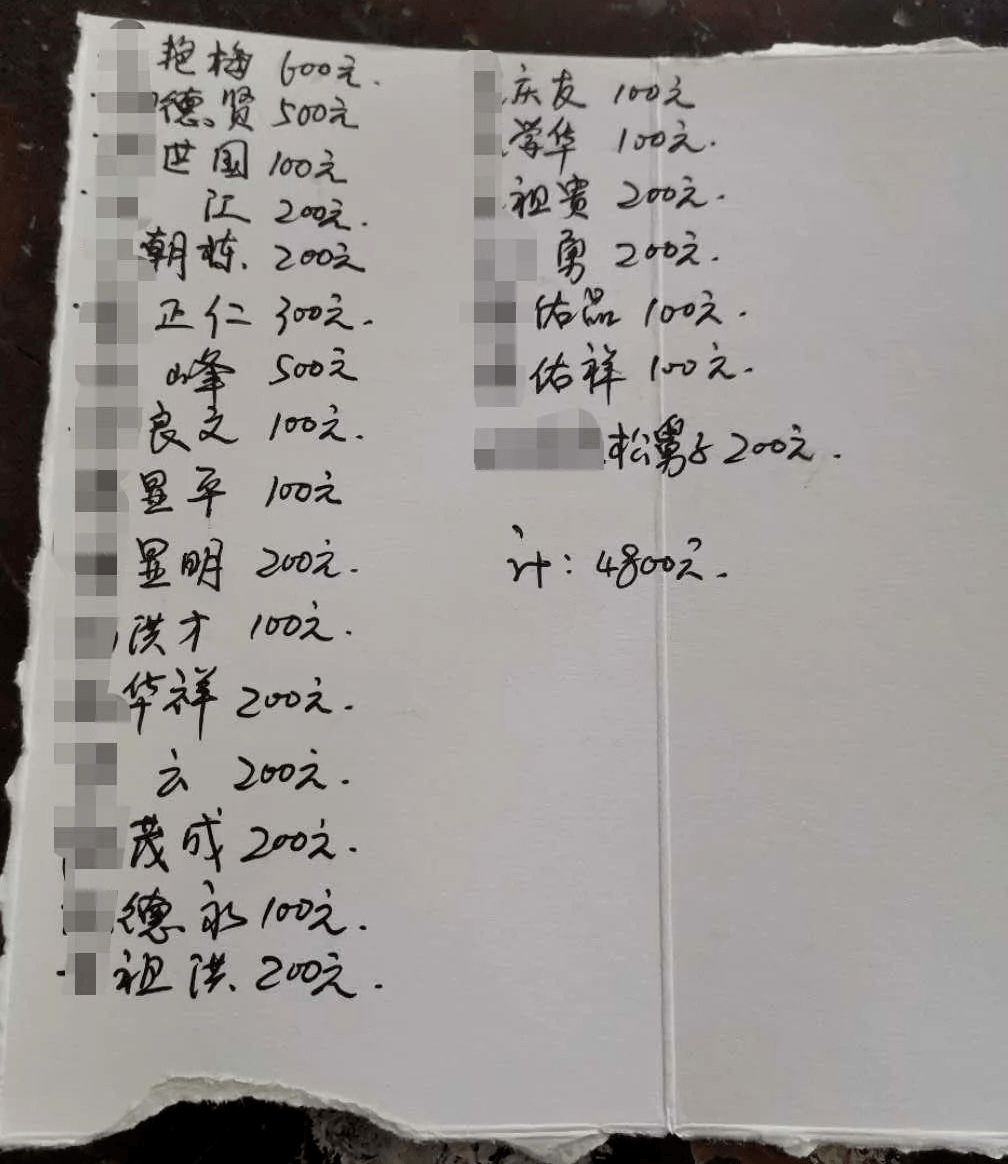 艳梅 600元.
德贤 500元
世国 100元
江 200元.
朝栋. 200元
正仁 300元.
峰 500元
良文 100元.
显平 100元
显明 200元.
洪才 100元.
华祥 200元.
云 200元.
茂成 200元.
德永 100元.
祖洪. 200元.
庆友 100元
学华 100元.
祖贵 200元.
勇 200元.
佑品 100元.
佑祥 100元.
松舅 200元.
计: 4800元.